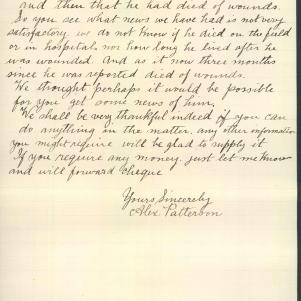 and then that he had died of wounds.
So you see what news we have had is not very
satisfactory, we do not know if he died on the field
or in hospital, nor how long he lived after he
was wounded. And as it now three months
since he was reported died of wounds.
We thought perhaps it would be possible
for you get some news of him.
We shall be very thankful indeed if you can
do anything in the matter, any other information
you might require will be glad to supply it
If you require any money, just let me know
and will forward cheque
Yours Sincerely
Alex Patterson